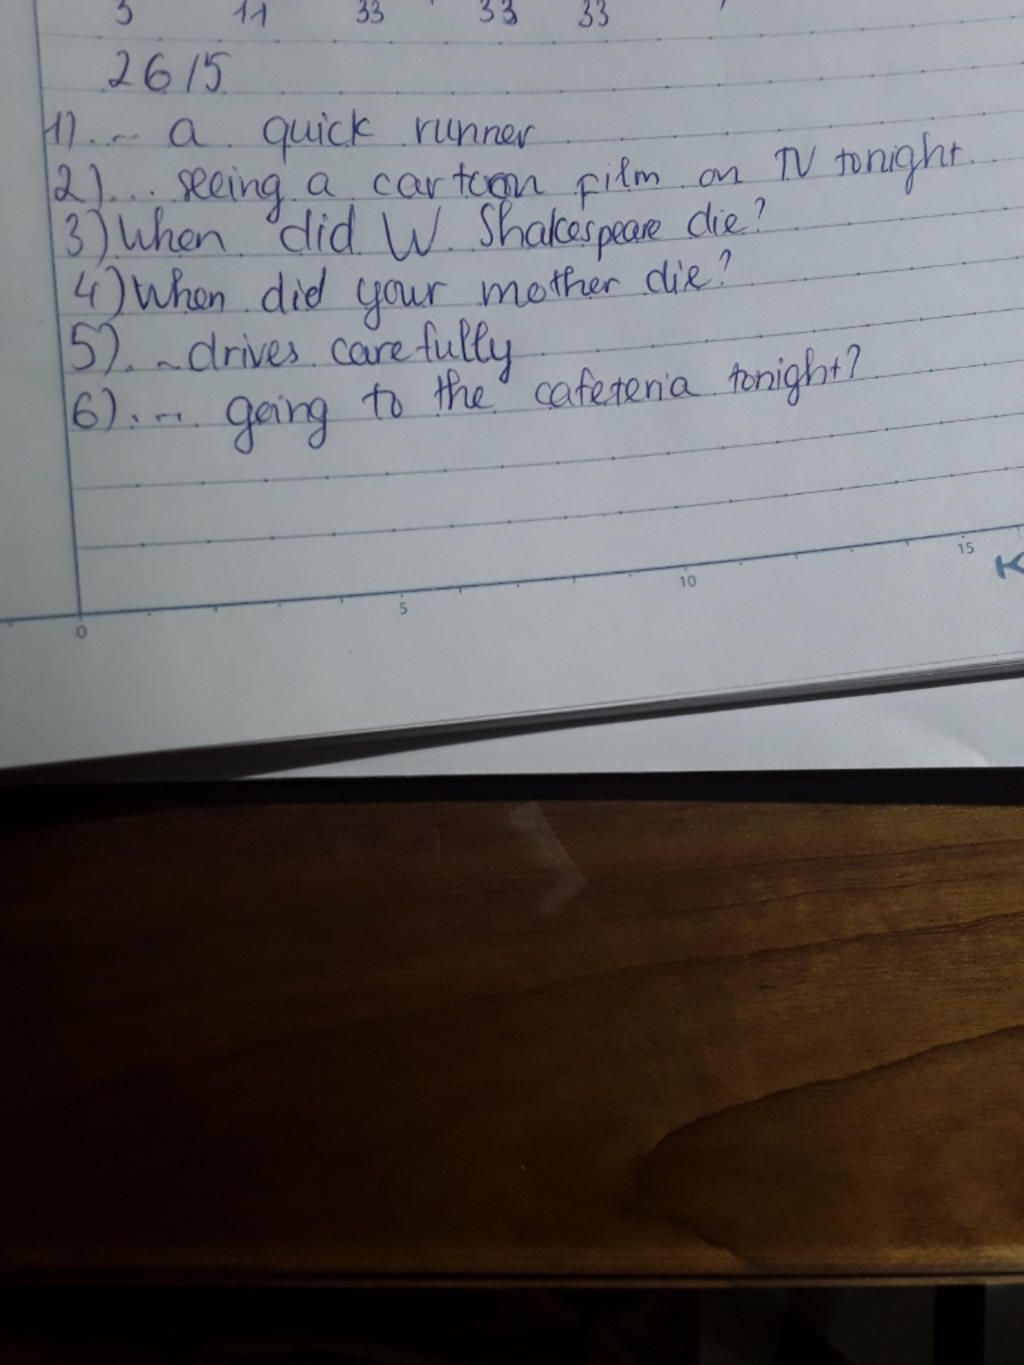 3 11 33 33 33
26/5
1)... a quick runner
2)... seeing a cartoon film on TV tonight.
3) When did W. Shakespeare die?
4) When did your mother die?
5)... drives carefully
6)... going to the cafeteria tonight?
0 5 10 15
K